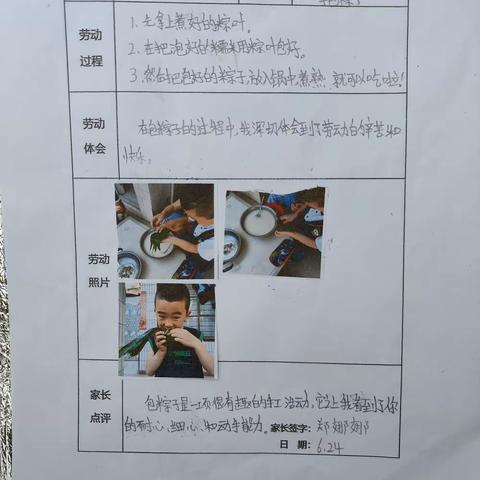 劳动
过程
1. 先拿上煮好的粽叶。
2. 在把泡好的糯米用粽叶包好。
3. 然后把包好的粽子,放入锅中煮熟 就可以吃啦!
劳动
体会
在包粽子的过程中,我深切体会到了劳动的辛苦和
快乐。
劳动
照片
家长
点评
包粽子是一项很有趣的手工活动,它让我看到了你
的耐心、细心、和动手能力。家长签字:郑娜娜
日 期: 6.24